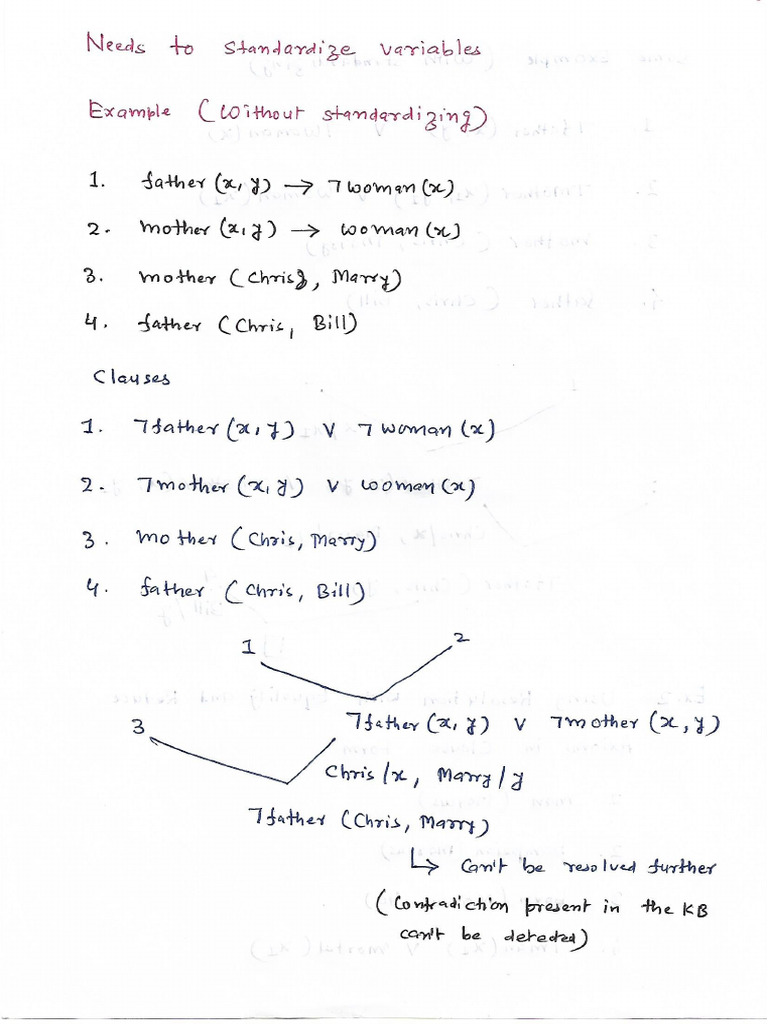 Needs to standardize variables
Example (Without standardizing)
1. father (x, y) → ¬woman(x)
2. mother (x, y) → woman(x)
3. mother (Chris, Marry)
4. father (Chris, Bill)
Clauses
1. ¬father (x, y) ∨ ¬woman (x)
2. ¬mother (x, y) ∨ woman (x)
3. mother (Chris, Marry)
4. father (Chris, Bill)
1 2
3 ¬father (x, y) ∨ ¬mother (x, y)
Chris/x, Marry/y
¬father (Chris, Marry)
↳ Can't be resolved further
(Contradiction present in the KB
can't be detected)